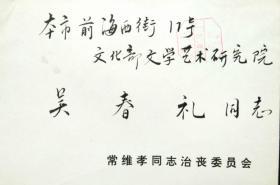 本市前海西街17号
文化部文学艺术研究院
吴春礼同志
常维孝同志治丧委员会